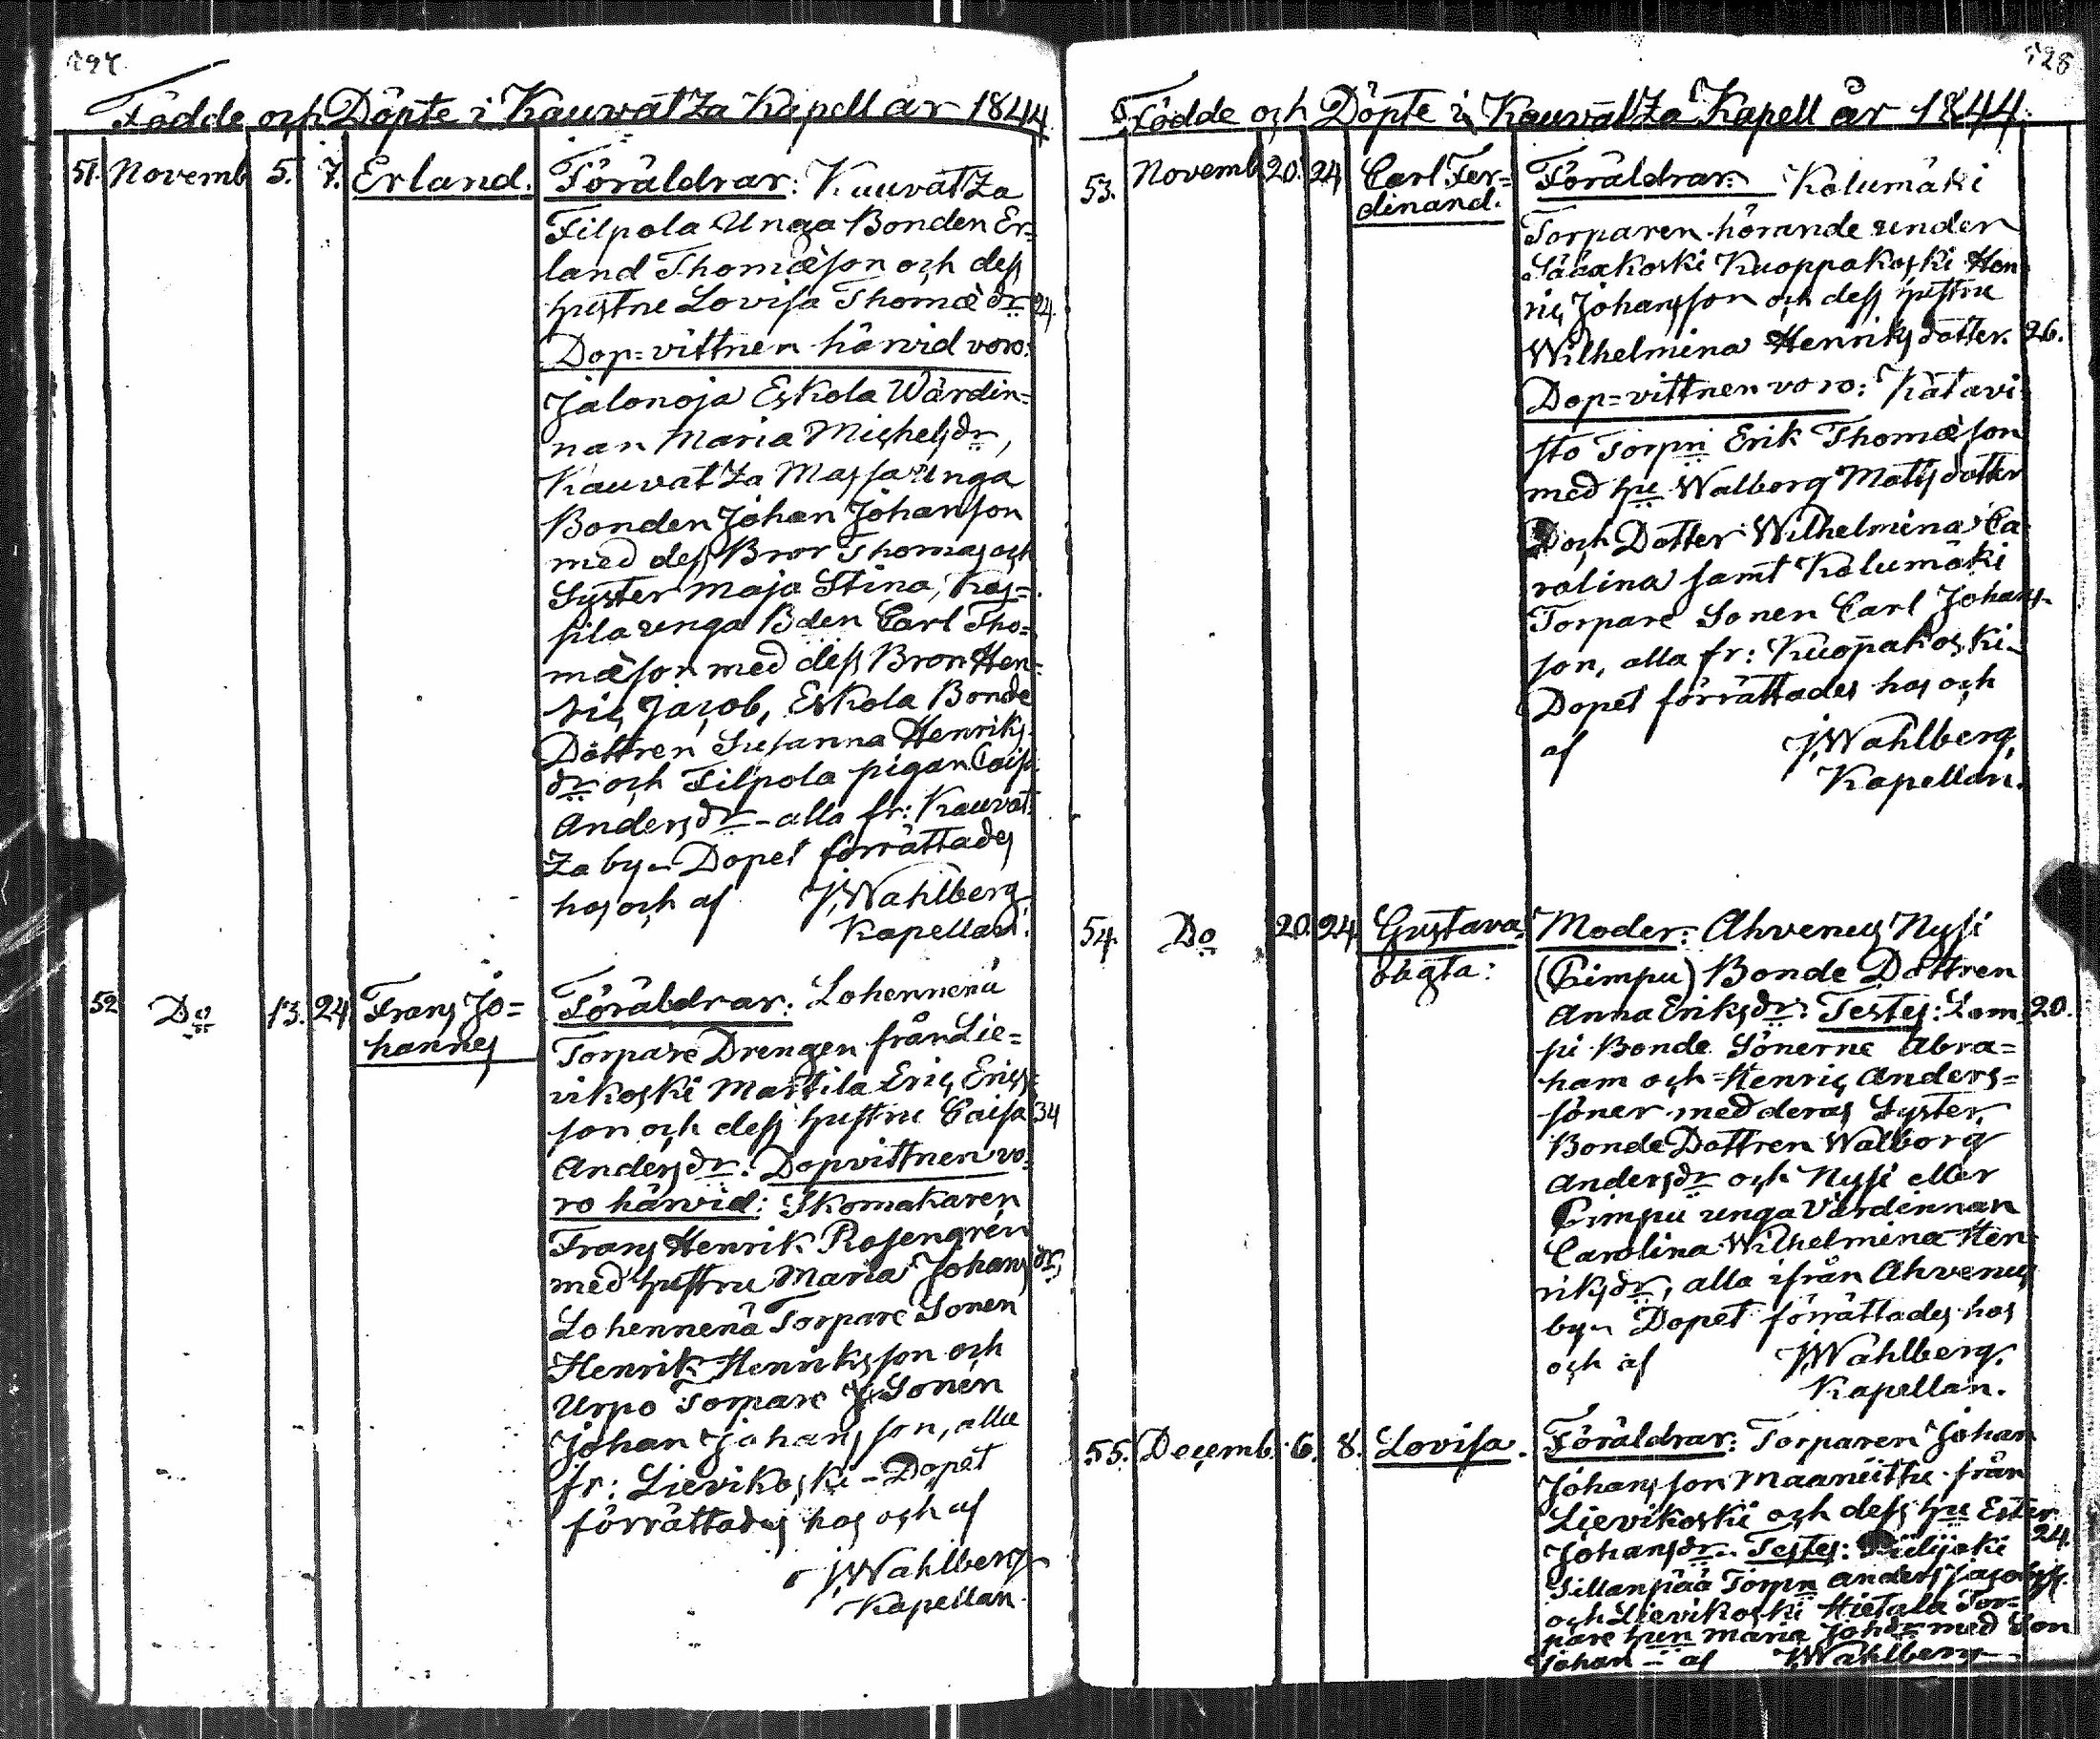 Födde och Döpte i Kauvatza Kapell år 1844
51. Novemb 5. 7. Erland. Föräldrar: Kauvatza
Filpola Unga Bonden Er=
land Thomæson och dess
hustru Lovisa Thomæ dr 24.
Dop=vittnen härvid voro:
Jalonoja Eskola Wärdin=
nan Maria Michelsdr,
Kauvatza Massa Unga
Bonden Johan Johanson
med dess Bror Thomas och
Syster Maja Stina, Kas=
sila unga Bden Carl Tho=
mæson med dess Bron Hen=
ric Jacob, Eskola Bonde
Döttren Susanna Henriks
dr och Filpola pigan Caisa
Andersdr - alla fr: Kauvat
za by - Dopet förrättades
hos och af J. Wahlberg
Kapellan.
52 Do 13. 24 Frans Jo= Föräldrar: Lohennenä
hannes Torpare Drengen från Lie=
vikoski Marttila Eric Erics
son och dess hustru Caisa 34
Andersdr. Dopvittnen vo=
ro härvid: Skomakaren
Frans Henrik Rosengrén
med hustru Maria Johans dr,
Lohennenä Torpare Sonen
Henrik Henriksson och
Urpo Torpare Sonen
Johan Johansson, alla
fr: Lievikoski - Dopet
förrättades hos och af
J. Wahlberg
Kapellan.
528
Födde och Döpte i Kauvatza Kapell år 1844.
53. Novemb 20. 24 Carl Fer= Föräldrar: Kolumäki
dinand. Torparen hörande under
Sääxkoski Kuoppakoski Hen
ric Johansson och dess hustru
Wilhelmina Henriksdotter. 26.
Dop=vittnen voro: Katavi
sto Torpn Erik Thomæson
med hu Walborg Mattsdotter
och Dotter Wilhelmina Ca
rolina samt Kolumäki
Torpare Sonen Carl Johans
son, alla fr: Kuopakoski -
Dopet förrättades hos och
af J. Wahlberg,
Kapellan.
54. Do 20. 24 Gustava. Moder: Ahvenus Nysi
oägta: (Cimpu) Bonde Dottren
Anna Eriksdr: Testes: Lam 20.
pi Bonde Sönerne Abra=
ham och Henric Anders=
söner med deras Syster
Bonde Dottren Walborg
Andersdr och Nysi eller
Cimpu unga Värdinnan
Carolina Wilhelmina Hen
riksdr, alla ifrån Ahvenus
by - Dopet förrättades hos
och af J. Wahlberg.
Kapellan.
55. Decemb. 6. 8. Lovisa. Föräldrar: Torparen Johan
Johansson Maanöittu från
Lievikoski och dess hu Ester
Johansdr. Testes: 24.
Sillanpää Torpn Anders Jacobss.
och Lievikoski Hietala Tor=
pare hun Maria Joh dr med Son
Johan - af J. Wahlberg